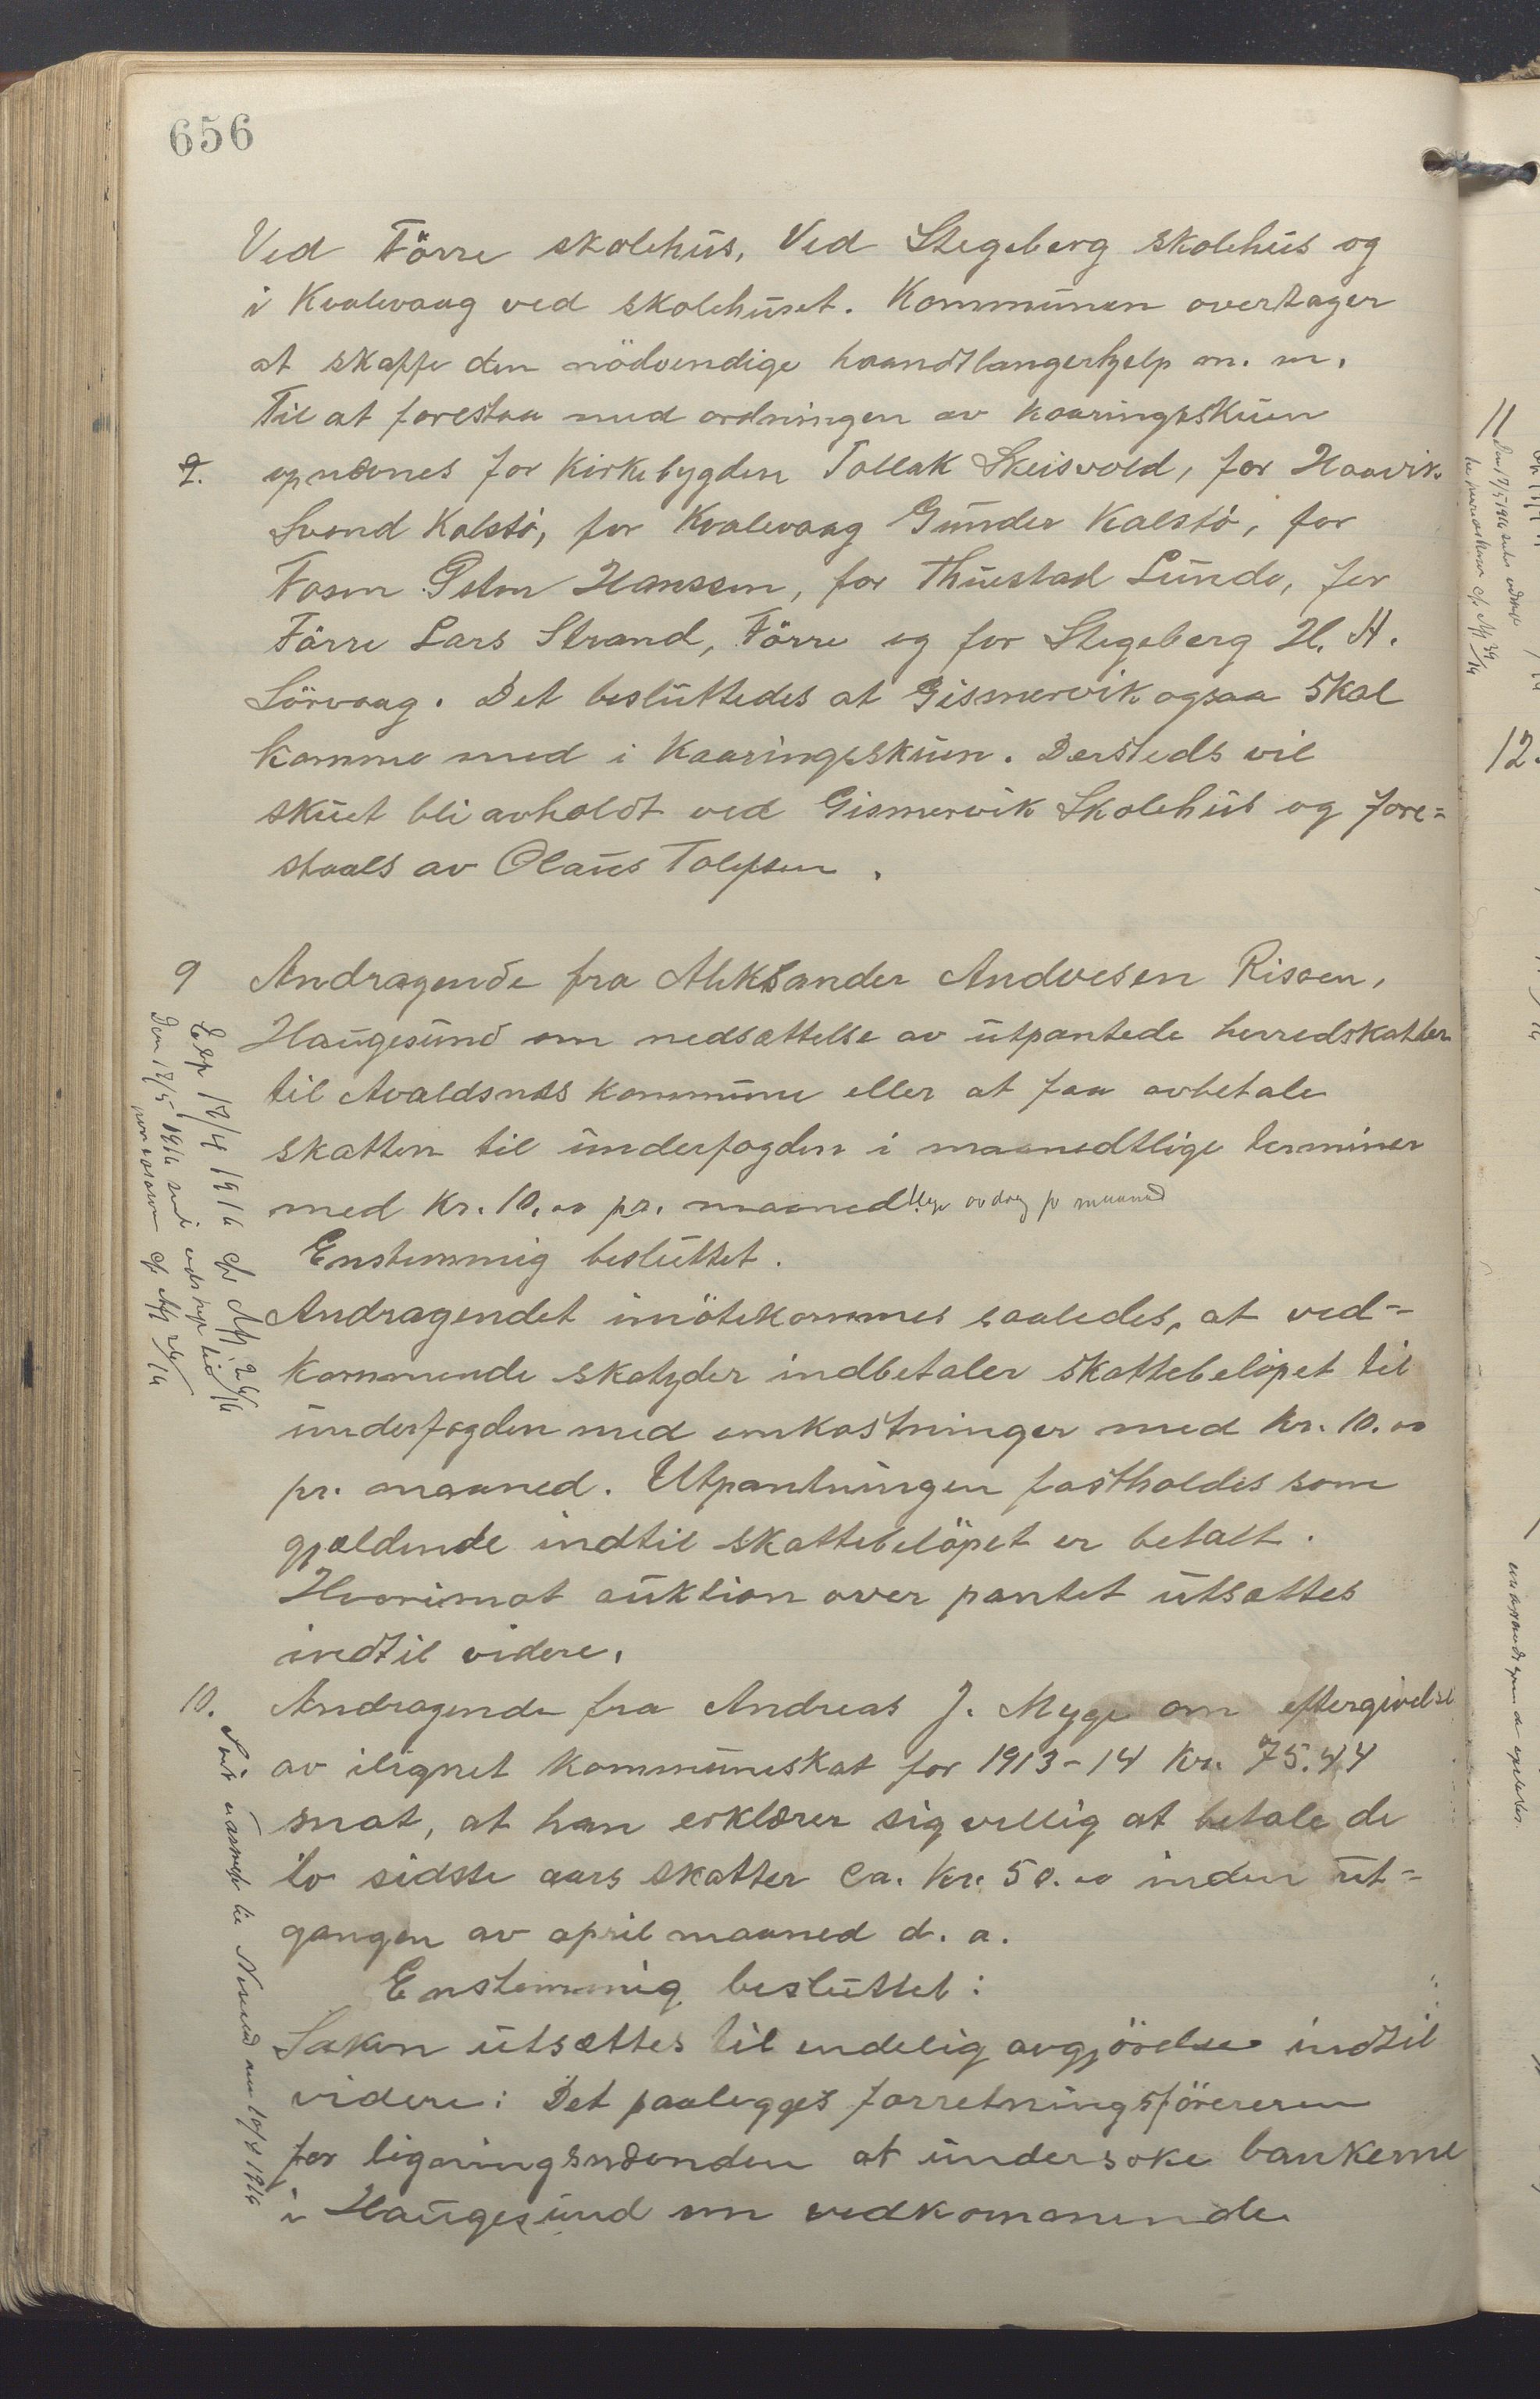 656
Ved Förre skolehus, Ved Stegeberg skolehus og
i Kvalevaag ved skolehuset. Kommunen overtager
at skaffe den nödvendige haandtlangerhjelp m. m.
Til at forestaa med ordningen av kaaringsskuen
opnævnes for Kirkebygden Tollak Skeisvold, for Haavik
Svend Kalstö, for Kvalevaag Gunder Kalstö, for
Fosen Peder Hanssen, for Thuestad Lunde, for
Förre Lars Strand, Förre og for Stegeberg H. H.
Sörvaag. Det besluttedes at Gismervik ogsaa skal
komme med i Kaaringsskuen. Dersteds vil
skuet bli avholdt ved Gismervik Skolehus og fore-
staaes av Olaus Tolefsen.
9 Andragende fra Aleksander Andresen Risøen,
Haugesund om nedsættelse av utpantede herredskatter
til Avaldsnes kommune eller at faa avbetale
skatten til underfogden i maanedtlige terminer
med Kr. 10.00 pr. maaned
Enstemmig besluttet.
Andragendet imötekommes saaledes, at ved-
kommende skatyder indbetaler skattebelöpet til
underfogden med omkostninger med Kr. 10.00
pr. maaned. Utpantningen fastholdes som
gjældende indtil skattebelöpet er betalt.
Hvorimot auktion over pantet utsættes
indtil videre.
10. Andragende fra Andreas J. Myge om eftergivelse
av ilignet kommuneskat for 1913-14 Kr. 75.44
mot, at han erklærer sig villig at betale de
to sidste aars skatter ca. Kr. 50.00 inden ut-
gangen av april maaned d. a.
Enstemmig besluttet:
Saken utsættes til endelig avgjörelse indtil
videre: Det paalegges forretningsförereren
for ligningsnævnden at undersøke bankerne
i Haugesund om vedkommende
Exp 17/4 1916
11
12.